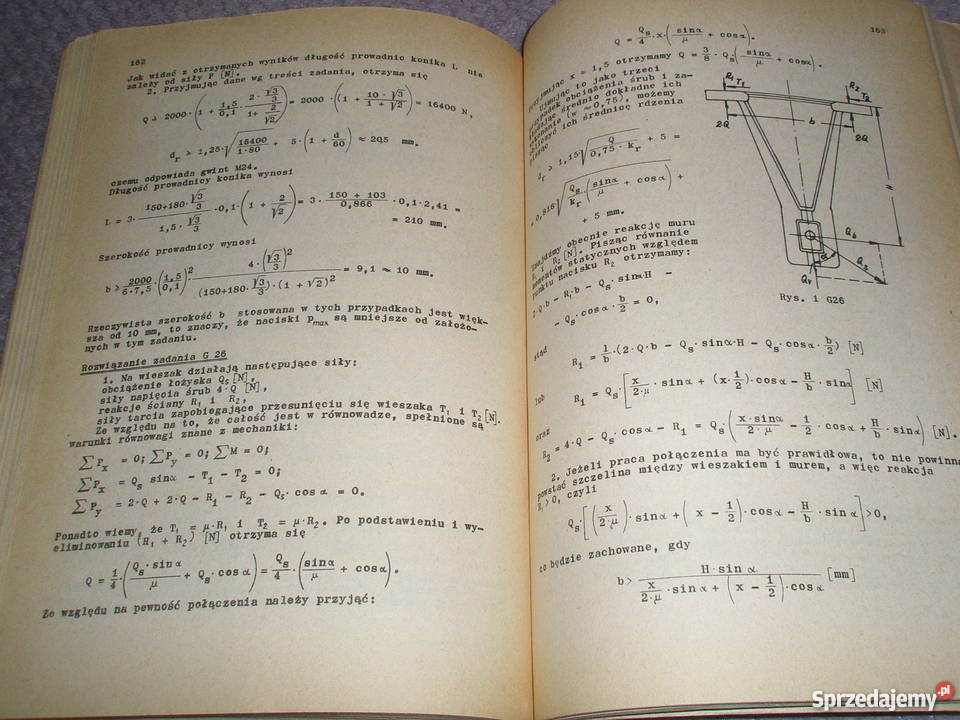 162
Jak widać z otrzymanych wyników długość prowadnic konika L nie
zależy od siły P [N].
2. Przyjmując dane wg treści zadania, otrzyma się
Q ≥ 2000·(1 + 1,5/0,1 · (2·√3/3)/(1+2/√2)) = 2000·(1 + 10·√3/(1+√2)) = 16400 N,
d_r ≥ 1,25·√(16400/(1·80)) + 5·(1 + d/60) ≈ 20,5 mm.
czemu odpowiada gwint M24.
Długość prowadnicy konika wynosi
L = 3·(150+180·√3/3)/(1,5·√3/3)·0,1·(1 + 2/√2) = 3·(150 + 103)/0,866·0,1·2,41 =
= 210 mm.
Szerokość prowadnicy wynosi
b ≥ 2000/(6·7,5)·(1,5/0,1)²·4·(√3/3)²/((150+180·√3/3)·(1 + √2)²) = 9,1 ≈ 10 mm.
Rzeczywista szerokość b stosowana w tych przypadkach jest więk-
sza od 10 mm, to znaczy, że naciski p_max są mniejsze od założo-
nych w tym zadaniu.
Rozwiązanie zadania G 26
1. Na wieszak działają następujące siły:
obciążenie łożyska Q_s [N],
siły napięcia śrub 4·Q [N],
reakcje ściany R₁ i R₂,
siły tarcia zapobiegające przesunięciu się wieszaka T₁ i T₂ [N].
Ze względu na to, że całość jest w równowadze, spełnione są
warunki równowagi znane z mechaniki:
∑P_x = 0; ∑P_y = 0; ∑M = 0;
∑P_x = Q_s sinα - T₁ - T₂ = 0;
∑P_y = 2·Q + 2·Q - R₁ - R₂ - Q_s·cosα = 0.
Ponadto wiemy, że T₁ = μ·R₁ i T₂ = μ·R₂. Po podstawieniu i wy-
eliminowaniu (R₁ + R₂) [N] otrzyma się
Q = 1/4·(Q_s·sinα/μ + Q_s·cosα) = Q_s/4·(sinα/μ + cosα).
Ze względu na pewność połączenia należy przyjąć:
163
Q = Q_s/4·x·(sinα/μ + cosα).
Przyjmując x = 1,5 otrzymamy Q = 3/8·Q_s(sinα/μ + cosα).
Ujmując to jako trzeci
przypadek obciążenia śrub i za-
kładając średnio dokładne ich
wykonanie (w ≈ 0,75), możemy
obliczyć ich średnicę rdzenia
d_r ≥ 1,15√(Q/(0,75·k_r)) + 5 =
= 0,816√(Q_s/k_r(sinα/μ + cosα)) +
+ 5 mm.
Znajdźmy obecnie reakcję muru
R₁ i R₂ [N]. Pisząc równanie
momentów statycznych względem
punktu nacisku R₂ otrzymamy:
2·Q·b - R₁·b - Q_s·sinα·H -
- Q_s·cosα·b/2 = 0,
R₁ T₁
R₂ T₂
2Q
b
2Q
H
Q_b
α
Q_s
Q_v
Rys. 1 G26
stąd
R₁ = 1/b·(2·Q·b - Q_s·sinα·H - Q_s·cosα·b/2) [N]
lub
R₁ = Q_s·[x/(2·μ)·sinα + (x-1/2)·cosα - H/b·sinα] [N]
oraz
R₂ = 4·Q - Q_s·cosα - R₁ = Q_s(x·sinα/(2·μ) - 1/2·cosα + H/b·sinα) [N].
2. Jeżeli praca połączenia ma być prawidłowa, to nie powinna
powstać szczelina między wieszakiem i murem, a więc reakcja
R₁ > 0, czyli
Q_s·[(x/(2·μ))·sinα + (x - 1/2)·cosα - H/b·sinα] > 0,
co będzie zachowane, gdy
b > H·sinα/(x/(2·μ)·sinα + (x - 1/2)·cosα) [mm]
Sprzedajemy.pl